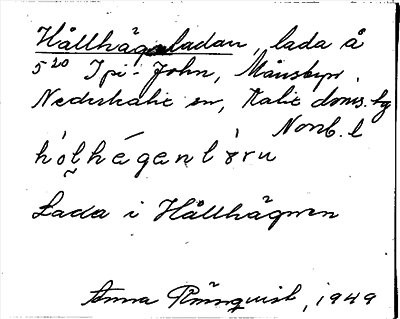 Hållhägnladan, lada å
5²⁰ Ipi-John, Månsbyn,
Nederkalix sn, Kalix doms. hg
Norrb. l
hólhégenlǫru
Lada i Hållhägnen
Anna Rönnqvist, 1949